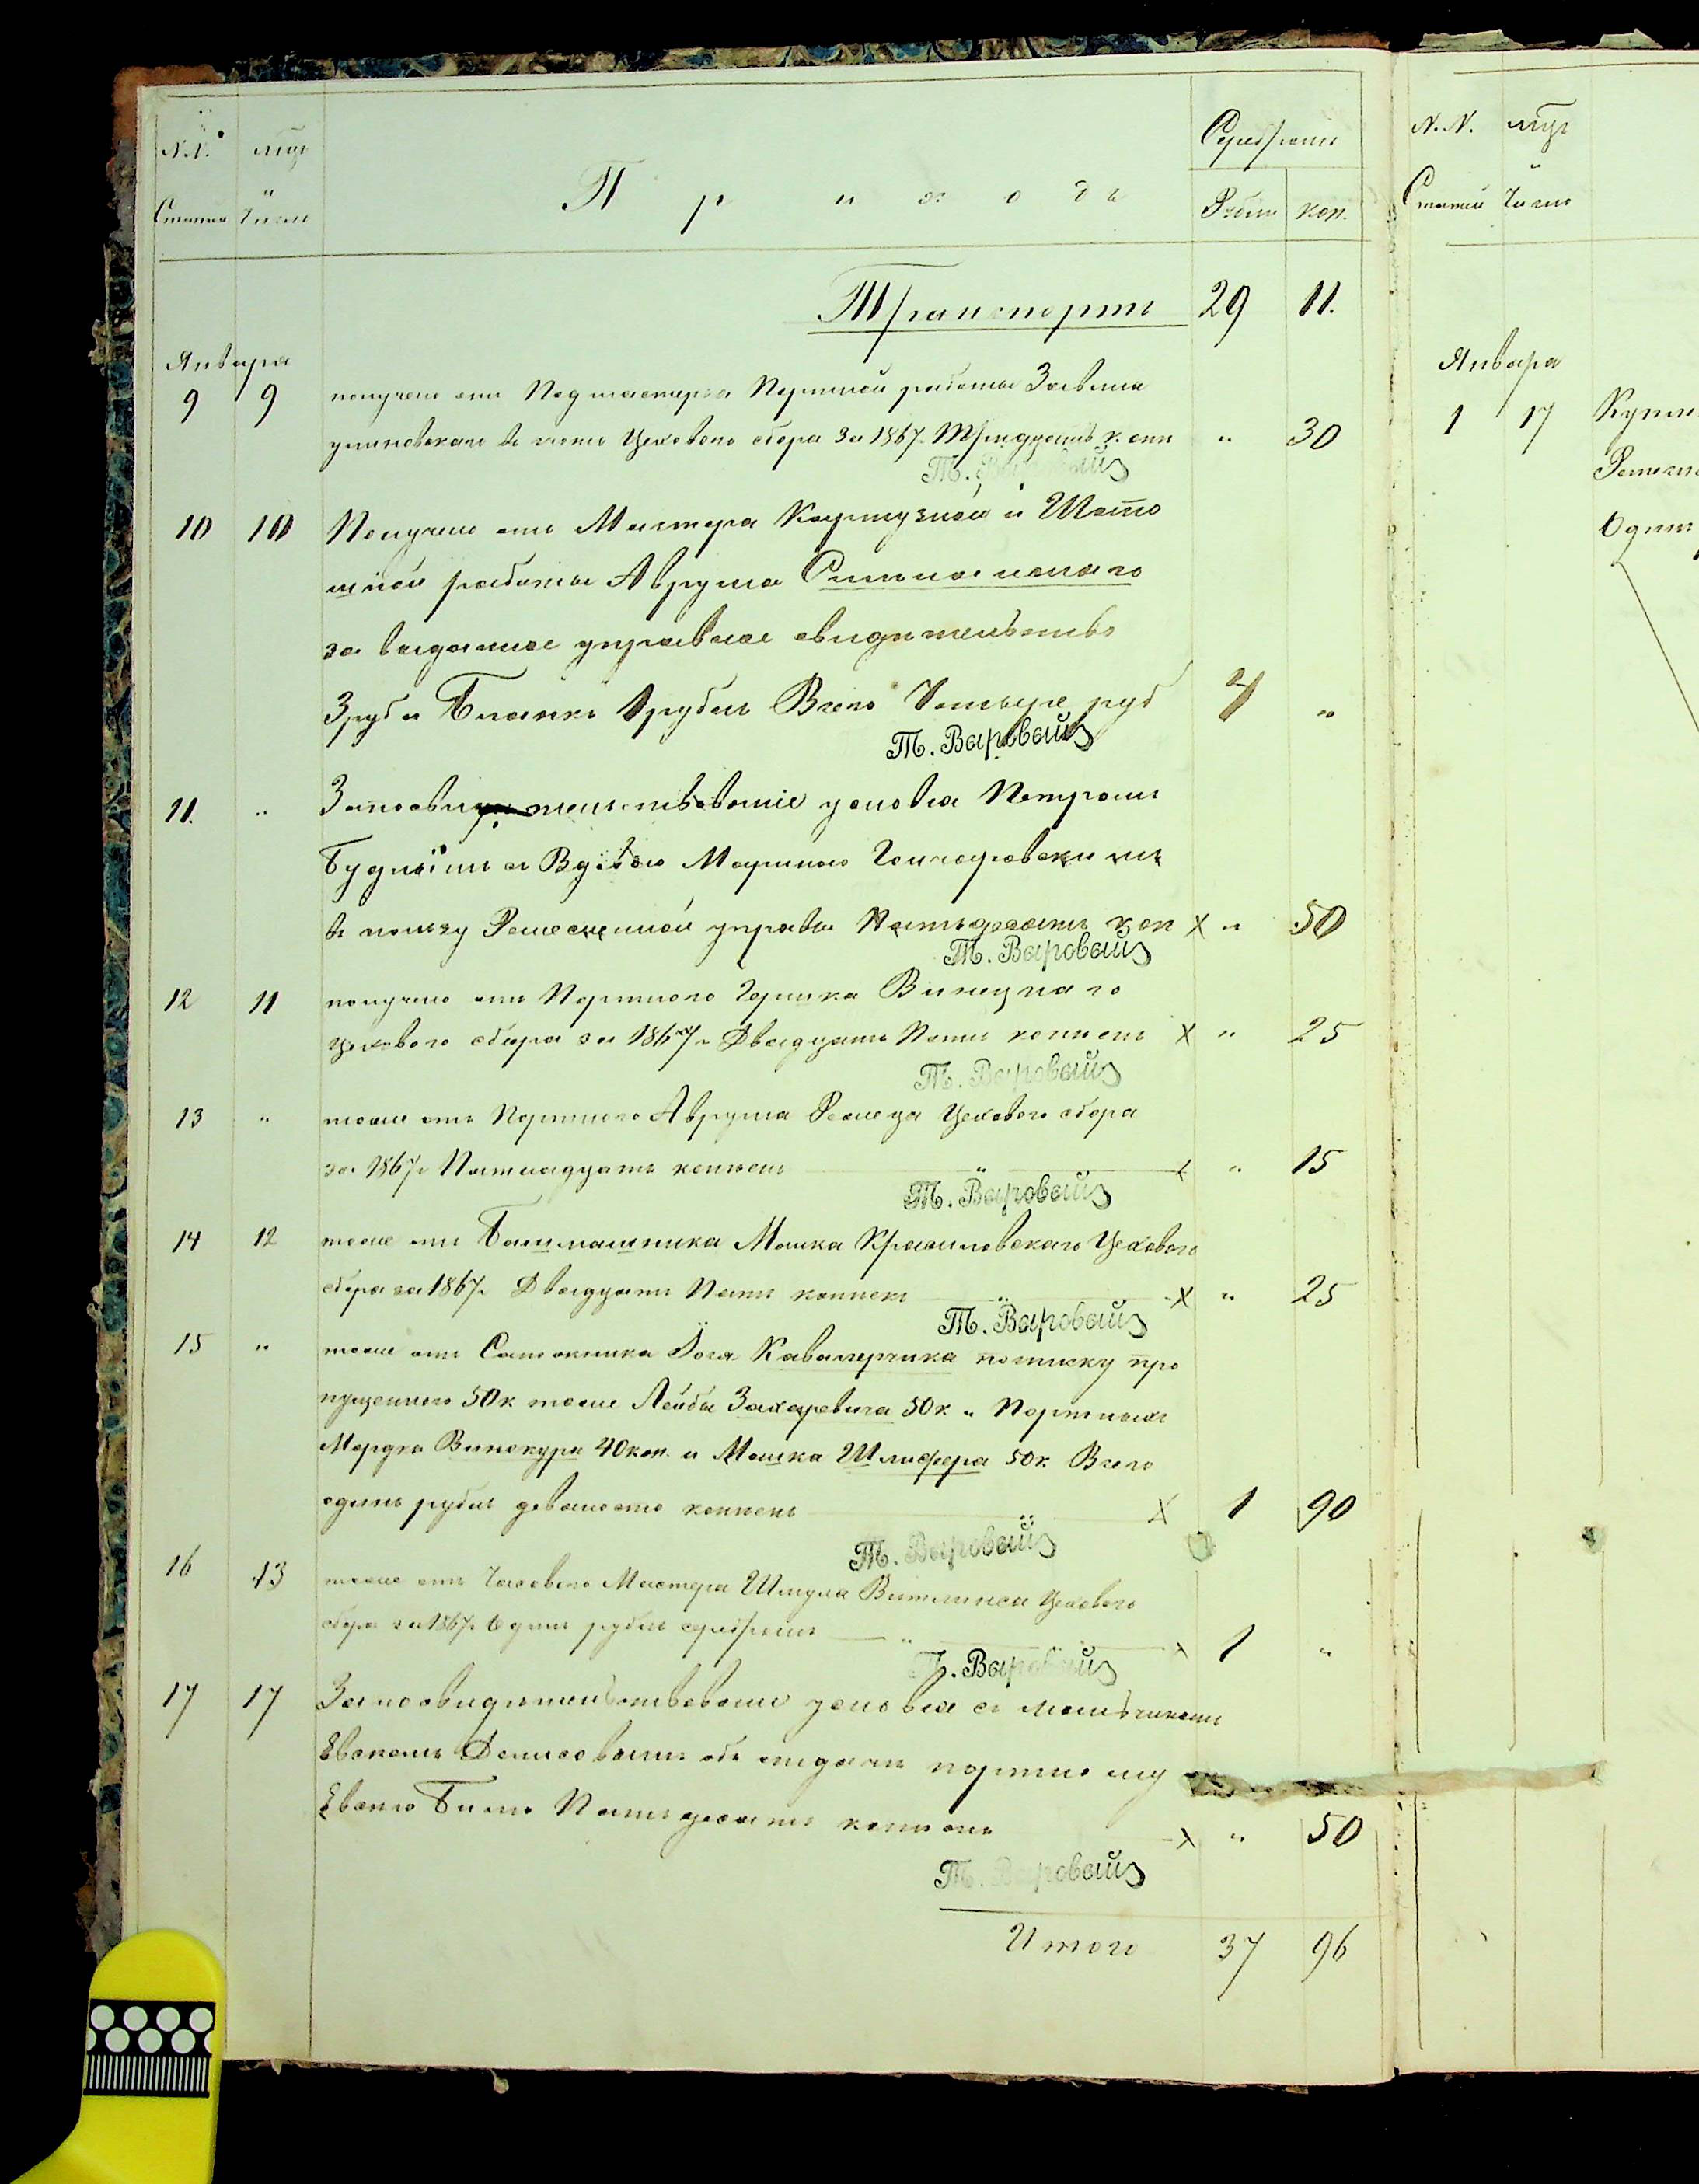 N.N. мцъ
Статьи Число
Приходъ
Серебромъ
Рубли коп.
Транспортъ 29 11.
Января
9 9 получено отъ Подмастерья Портной работы Зейлика
в счетъ Цеховаго сбора за 1867 г. Тридцать коп „ 30
Т. Варовайз
10 10 Получено отъ Мастера Картузной и Шапо
шной работы Аврума
за выданное управное свидетельство
3 руб и Бланкъ 1 рубль Всего Четыре руб 4 „
Т. Варовайз
11. „ Запосвидетельствованіе условія Петромъ
Буднымъ и Вдовою Мариною Гончаровскими
въ пользу Ремесленной управы Пятьдесятъ коп х „ 50
Т. Варовайз
12 11 получено отъ Портного Гершка Винецкаго
цеховаго сбора за 1867 г. Двадцать Пять копѣекъ х „ 25
Т. Варовайз
13 „ тоже отъ Портного Аврума Цехового сбора
за 1867 г Пятнадцать копѣекъ „ х „ 15
Т. Варовайз
14 12 тоже отъ Башмашника Мошка Красиловскаго Цехового
сбора за 1867 г. Двадцать Пять копѣекъ „ х „ 25
Т. Варовайз
15 „ тоже отъ Сапожника Кавалерчика по списку про
пущенного 50 к тоже Лейбы Захаревича 50 к. Портныхъ
Мордка Винокура 40 коп. и Мошка Шлифера 50 к. Всего
одинъ рубль девяносто копѣекъ х 1 90
Т. Варовайз
16 13 тоже отъ Часового Мастера Шмуля Цехового
сбора за 1867 г. Одинъ рубль серебромъ „ х 1 „
Т. Варовайз
17 17 Запосвидѣтельствованіе условія съ
Денисовымъ объ отдачи портному
Пятьдесятъ копѣекъ х „ 50
Т. Варовайз
Итого 37 96
N.N. мцъ
Статьи Число
Января
1 17